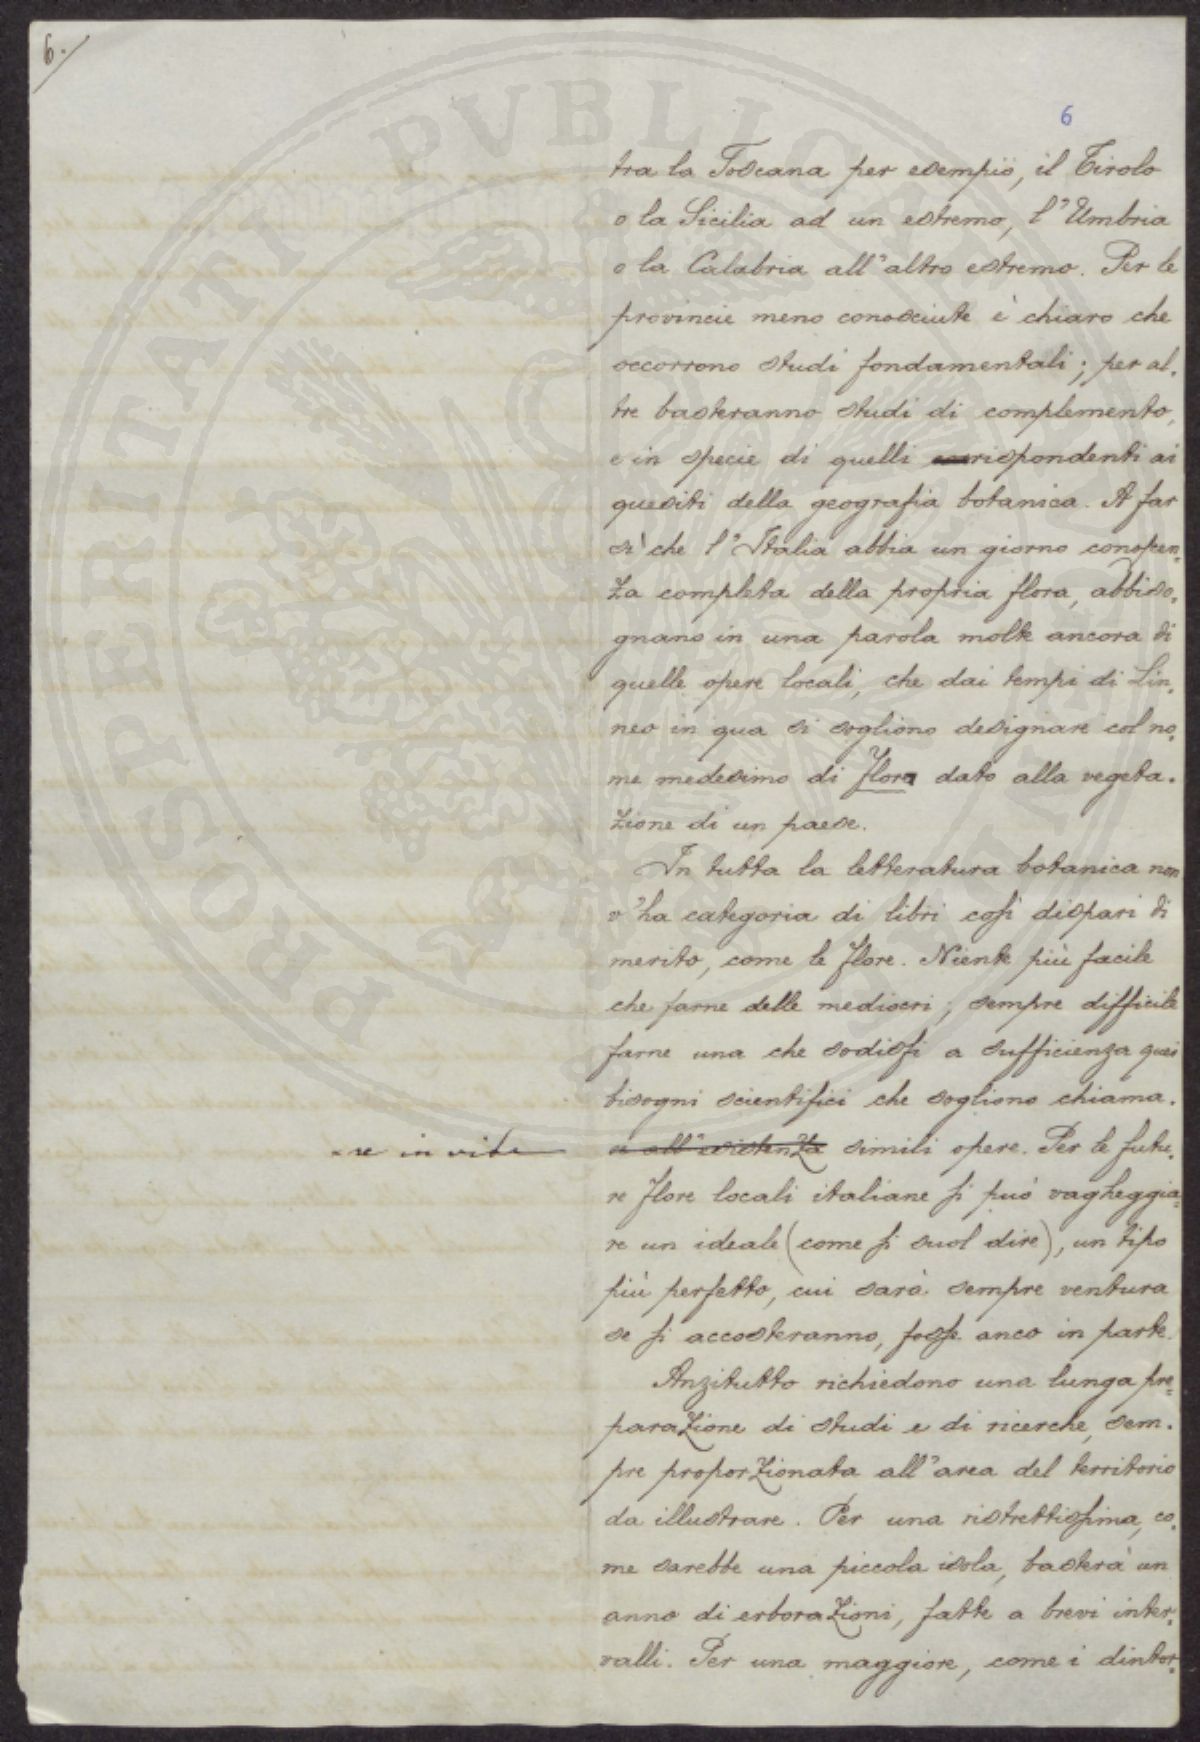 6.
6
tra la Toscana per esempio, il Tirolo
o la Sicilia ad un estremo, l'Umbria
o la Calabria all'altro estremo. Per le
provincie meno conosciute è chiaro che
occorrono studi fondamentali; per al-
tre basteranno studi di complemento,
e in specie di quelli rispondenti ai
quesiti della geografia botanica. A far
sì che l'Italia abbia un giorno conoscen-
za completa della propria flora, abbiso-
gnano in una parola molte ancora di
quelle opere locali, che dai tempi di Lin-
neo in qua si sogliono designare col no-
me medesimo di Flora dato alla vegeta-
zione di un paese.
In tutta la letteratura botanica non
v'ha categoria di libri così dispari di
merito, come le Flore. Niente più facile
che farne delle mediocri; sempre difficile
farne una che sodisfi a sufficienza quei
bisogni scientifici che sogliono chiama-
re in vita
re all'esistenza simili opere. Per le futu-
re Flore locali italiane si può vagheggia-
re un ideale (come si suol dire), un tipo
più perfetto, cui sarà sempre ventura
se si accosteranno, fosse anco in parte.
Anzitutto richiedono una lunga pre-
parazione di studi e di ricerche, sem-
pre proporzionata all'area del territorio
da illustrare. Per una ristrettissima, co-
me sarebbe una piccola isola, basterà un
anno di erborazioni, fatte a brevi inter-
valli. Per una maggiore, come i dintor-
PROSPERITATI PVBLICAE